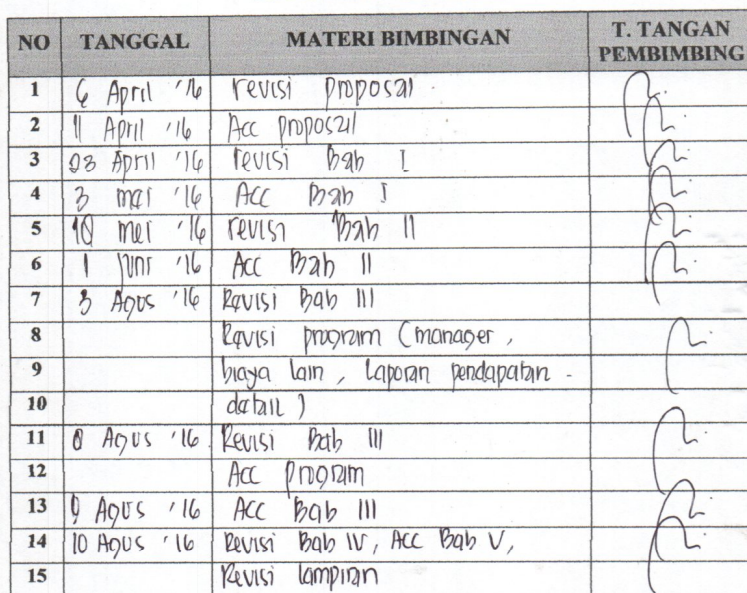 NO TANGGAL MATERI BIMBINGAN T. TANGAN PEMBIMBING
1 6 April '16 revisi proposal
2 11 April '16 Acc proposal
3 23 April '16 revisi Bab I
4 3 mei '16 Acc Bab I
5 10 mei '16 revisi Bab II
6 1 juni '16 Acc Bab II
7 3 Agus '16 Revisi Bab III
8 Revisi program (manager,
9 biaya lain, laporan pendapatan
10 detail)
11 8 Agus '16 Revisi Bab III
12 Acc program
13 9 Agus '16 Acc Bab III
14 10 Agus '16 Revisi Bab IV, Acc Bab V,
15 Revisi lampiran